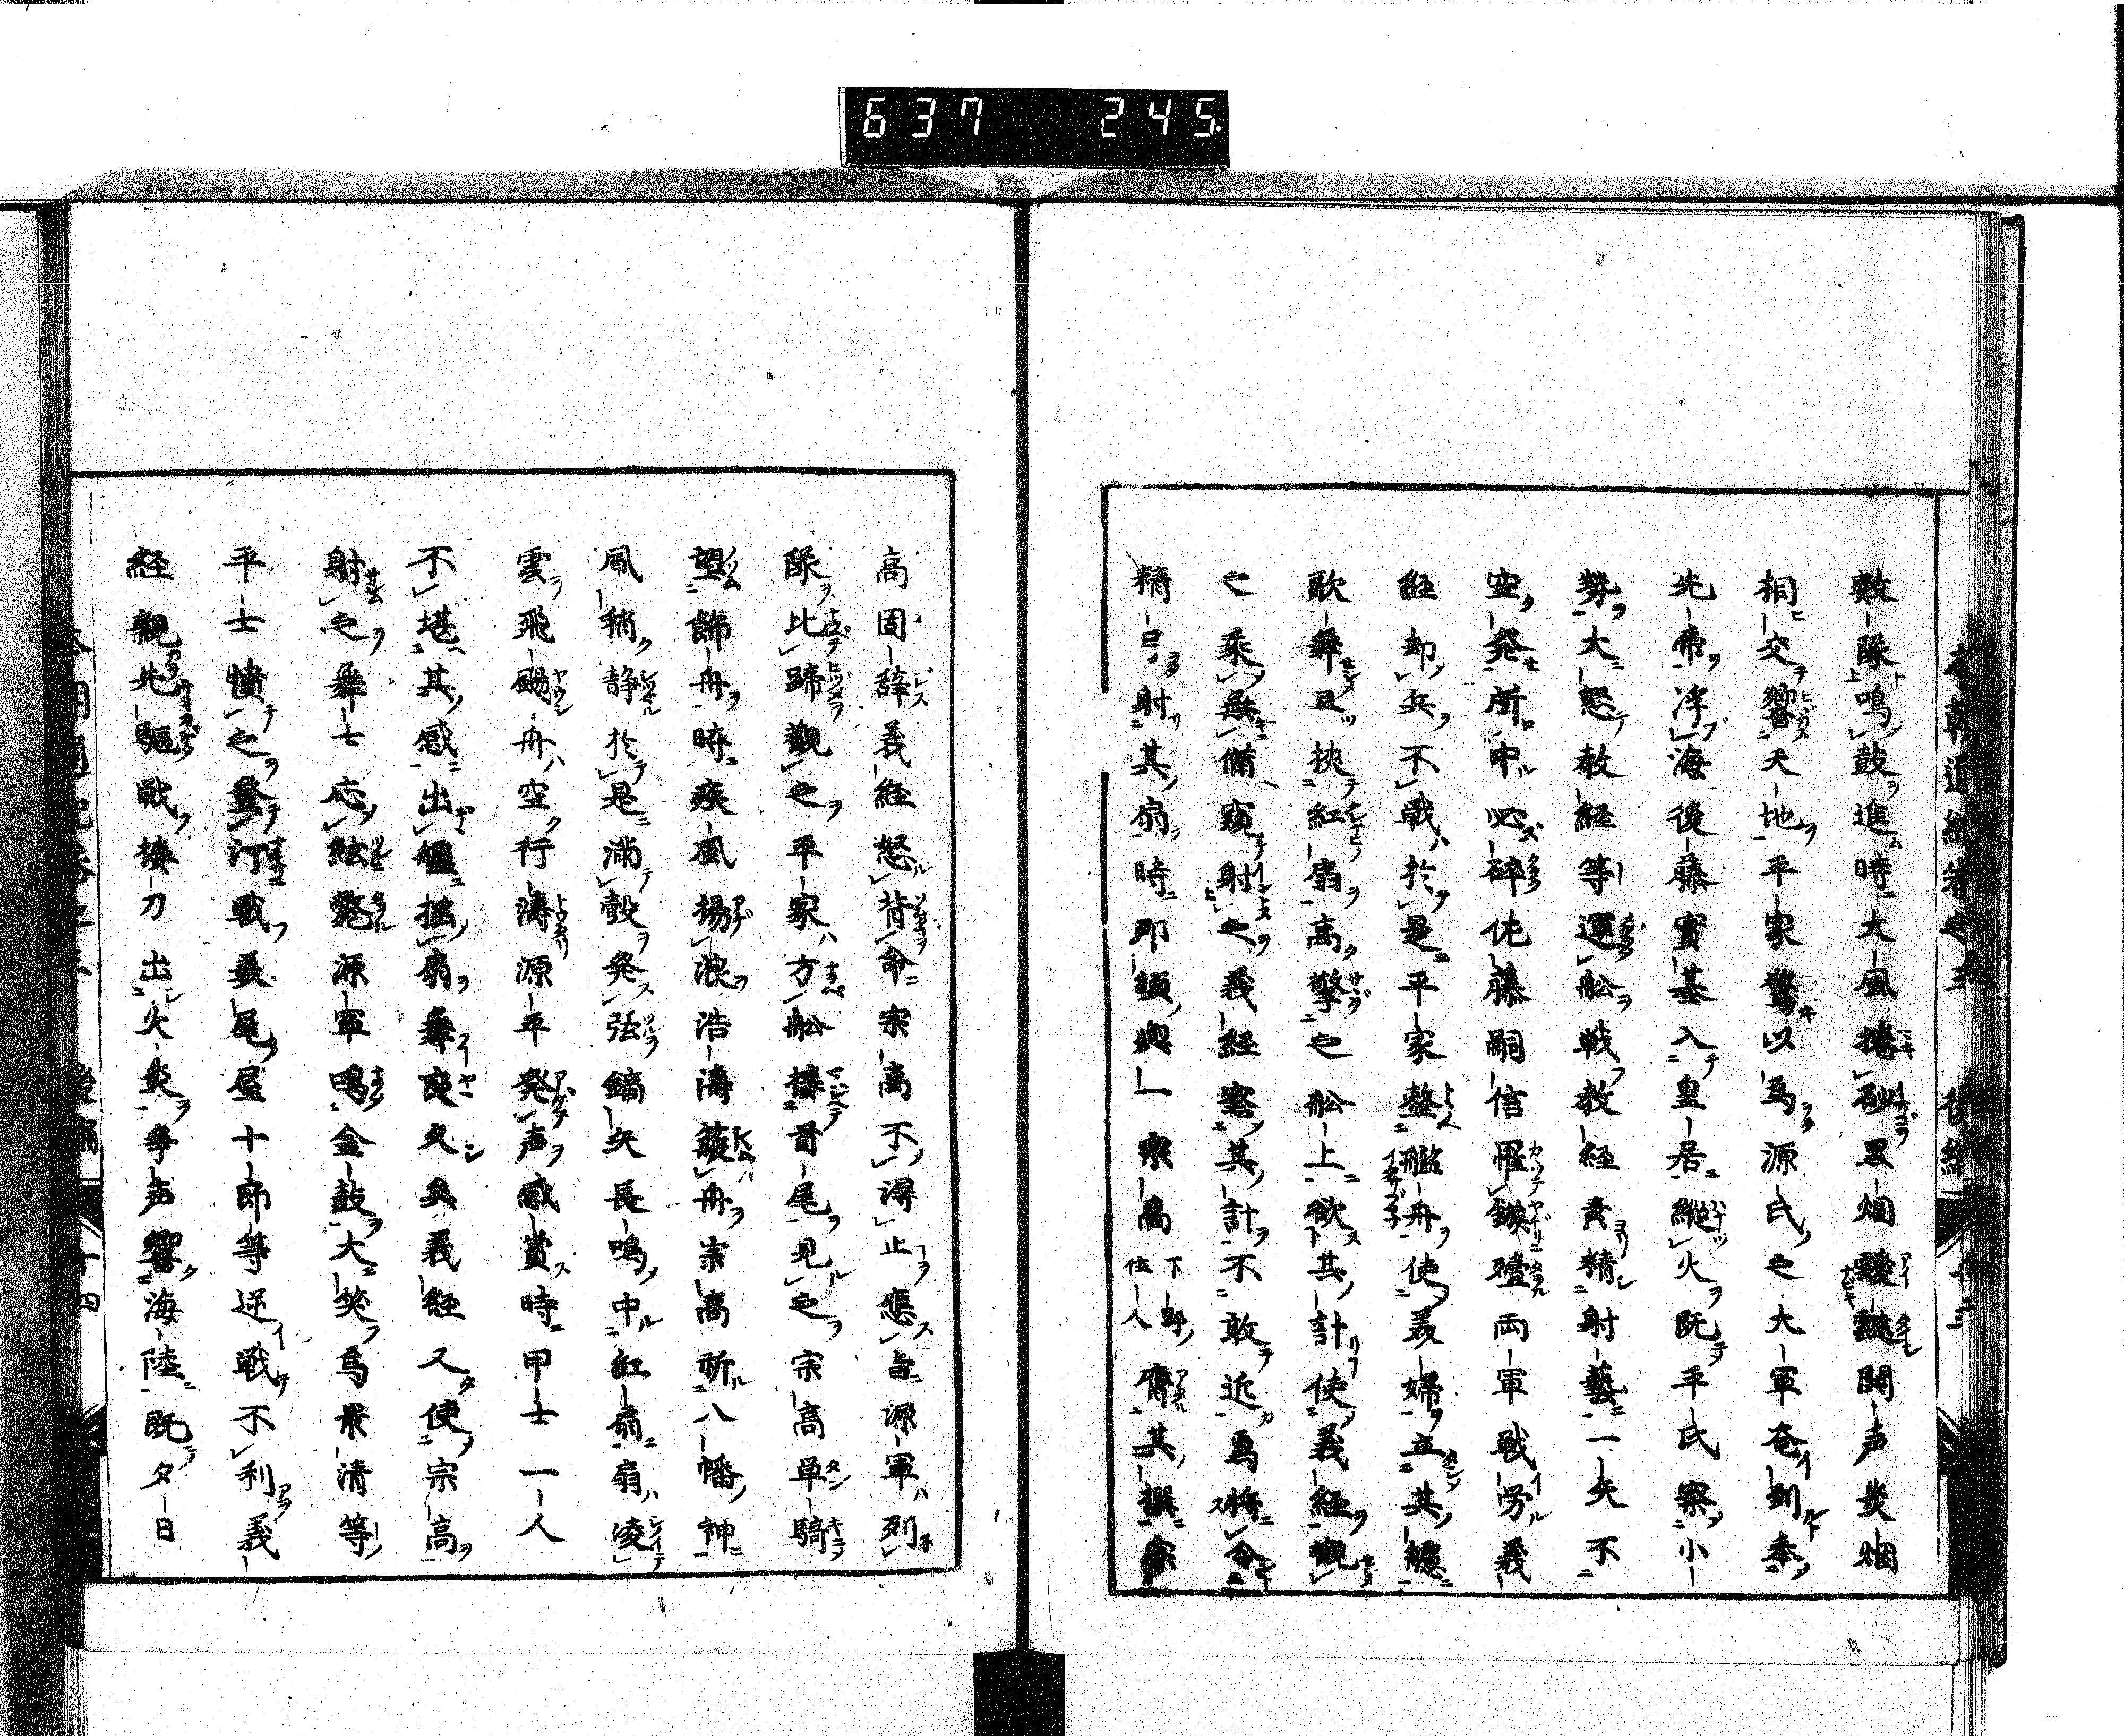 637 245
数隊鳴鼓進時大風捲砂黒烟靉靆鬨声炎烟
相交響天地平家驚以為源氏之大軍奄到奉
先帝浮海後藤實基入皇居縱火既平氏察小
勢大怒教経等運舩戦教経素精射藝一矢不
空発所中必碎佐藤嗣信罹鏃殪両軍戦労義
経却兵不戦於是平家整艦舟使美婦立其艫
歌舞且挟紅扇高擎之舩上欲其計使義経觀
之乘無備窺射之義経察其計不敢近焉將令
精巳射其扇時那須與一宗高下野住人膺其撰宗
高固辞義経怒背命宗高不得止應旨源軍列
隊比蹄觀之平家方舩接首尾見之宗高単騎
望飾舟時疾風揚浪浩濤蕩舟宗高祈八幡神
風稍静於是満彀発弦鏑矢長鳴中紅扇扇凌
雲飛颺舟空行濤源平発声感賞時甲士一人
不堪其感出艫揺扇舞良久矣義経又使宗高
射之舞士応弦斃源軍鳴金鼓大笑焉景清等
平士憤之登汀戦美尾屋十郎等逆戦不利義
経親先驅戦接刀出火炎争声響海陸既夕日